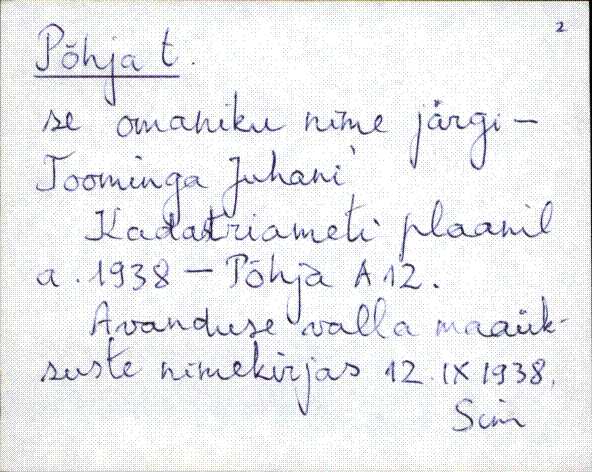 2
Põhja t.
se omaniku nime järgi –
Toominga Juhani
Kadastriameti plaanil
a. 1938 – Põhja A 12.
Avanduse valla maaük-
suste nimekirjas 12.IX 1938.
Sim